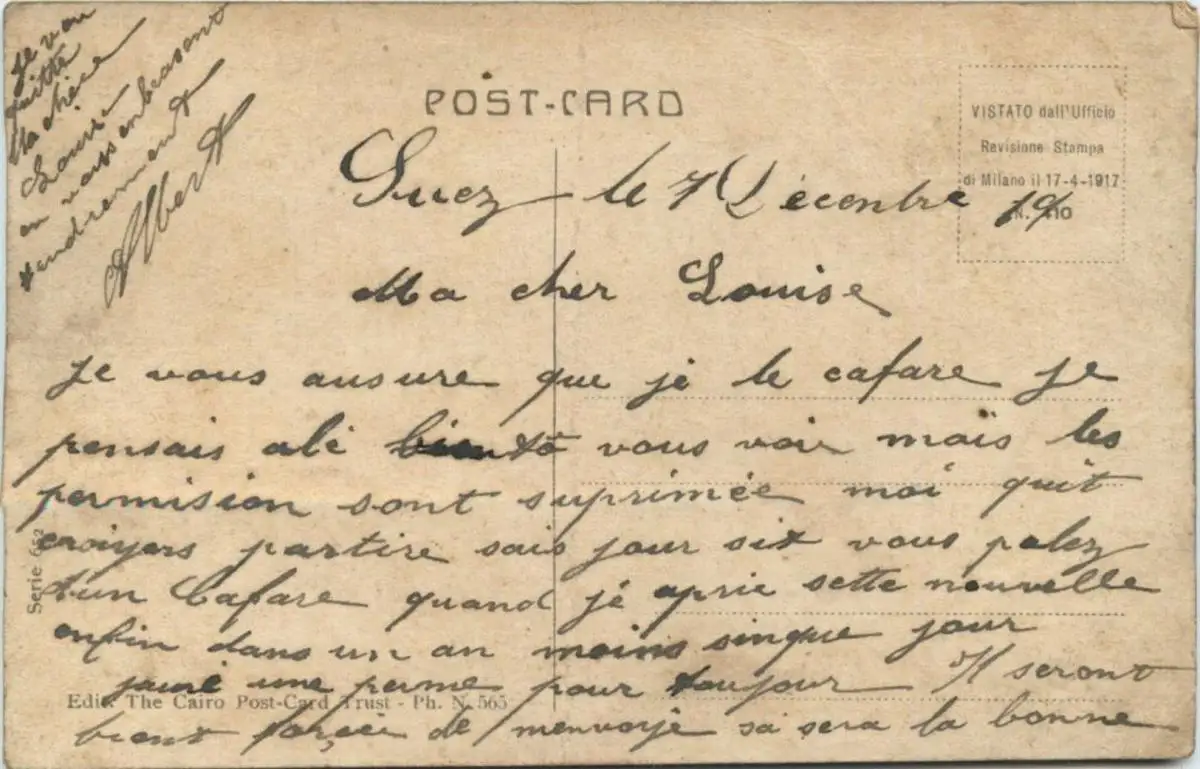 POST-CARD
VISTATO dall'Ufficio
Revisione Stampa
di Milano il 17-4-1917
N. 410
Suez le 7 Décentbre 19
Ma cher Louise
Je vous ausure que jé le cafare je
pensais alé bientô vous voir maïs les
permision sont suprimée moi quit
croiyers partire sais jour six vous palez
d'un Cafare quand jé aprie sette nouvelle
enfin dans un an moins sinque jour
jauré une perme pour toujour Il seront
bient forcée de menvoyé sa sera la bonne
Je vou
quitte
Ma chère
Louise
en vous enbrasent
tendrement
Albert
Serie 652
Edit. The Cairo Post-Card Trust - Ph. N. 565